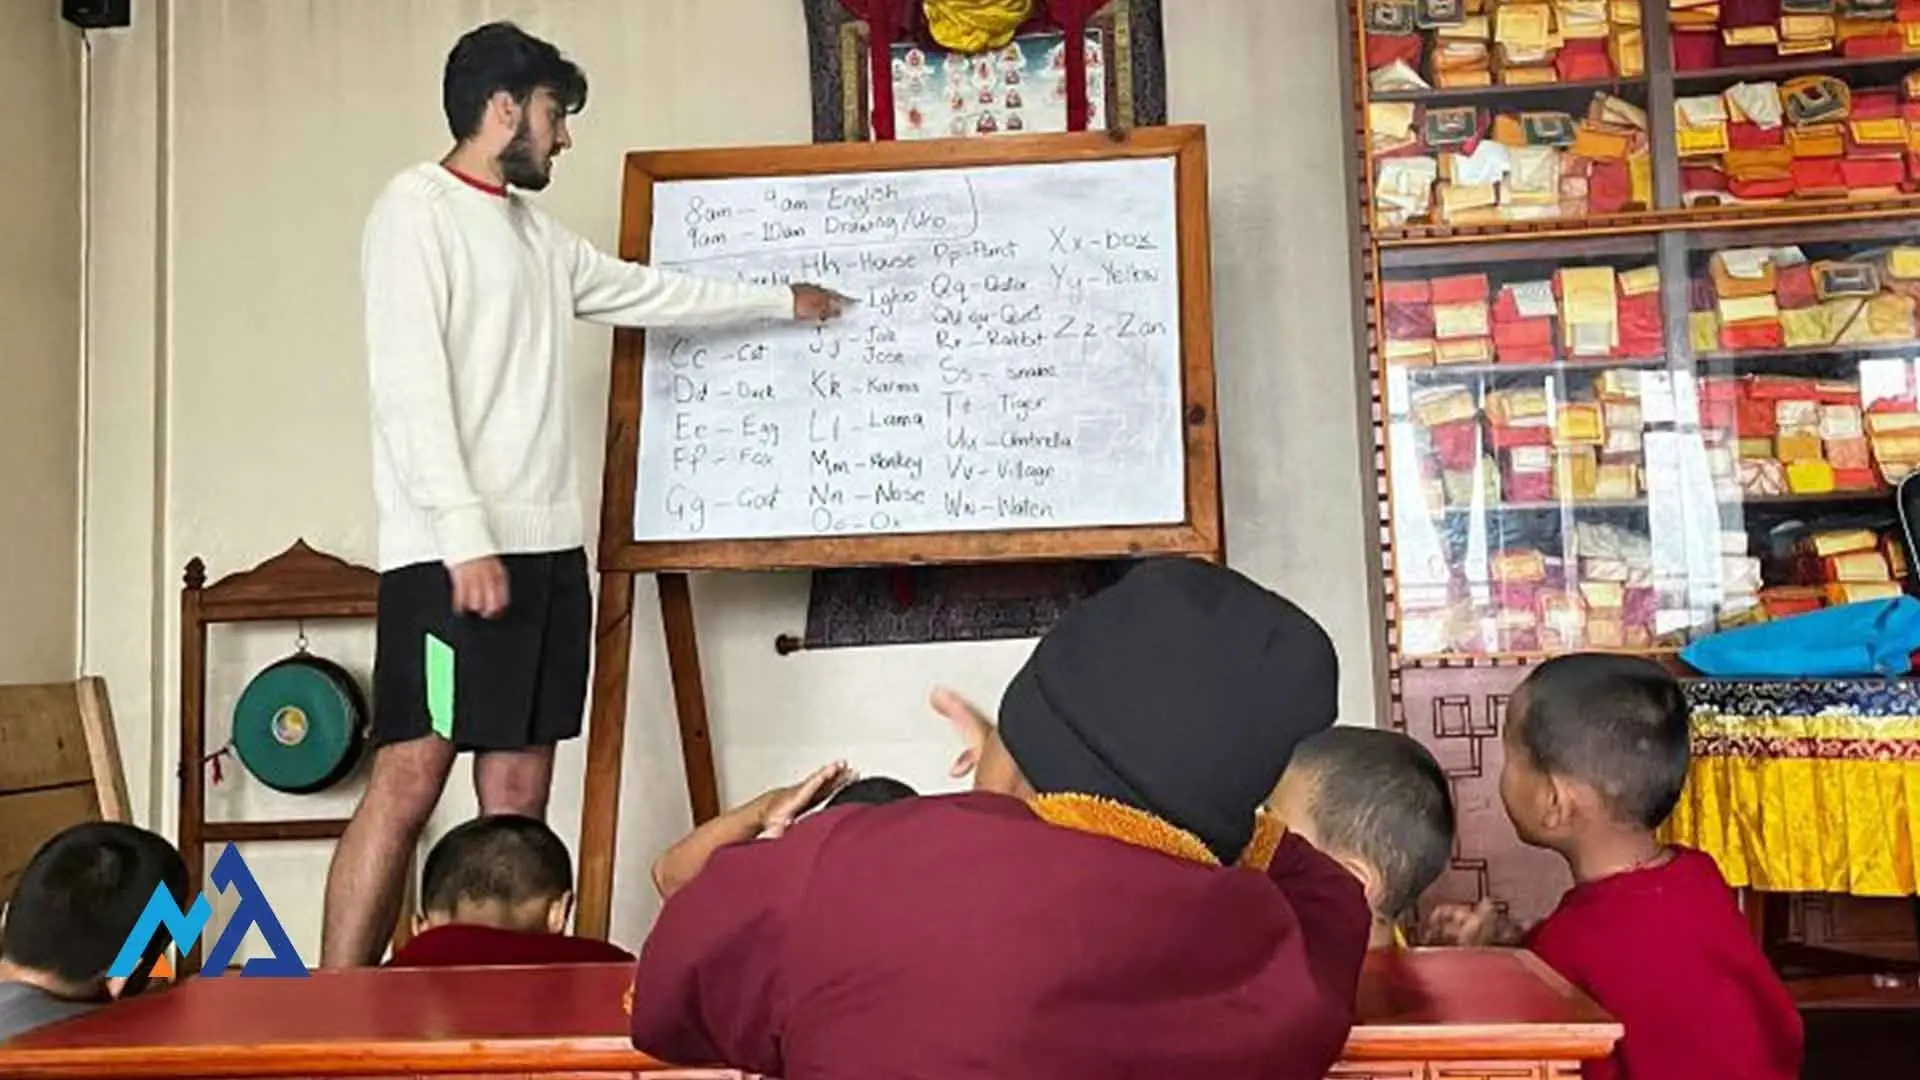 8am - 9am English
9am - 10am Drawing/Uno
Cc - Cat
Dd - Duck
Ee - Egg
Ff - Fox
Gg - Goat
Hh - House
- Igloo
Jj -
Kk - Karma
Ll - Lama
Mm - Monkey
Nn - Nose
Oo - Ox
Pp -
Qq -
Rr - Rabbit
Ss - Snake
Tt - Tiger
Uu - Umbrella
Vv - Village
Ww - Watch
Xx - box
Yy - Yellow
Zz - Zan